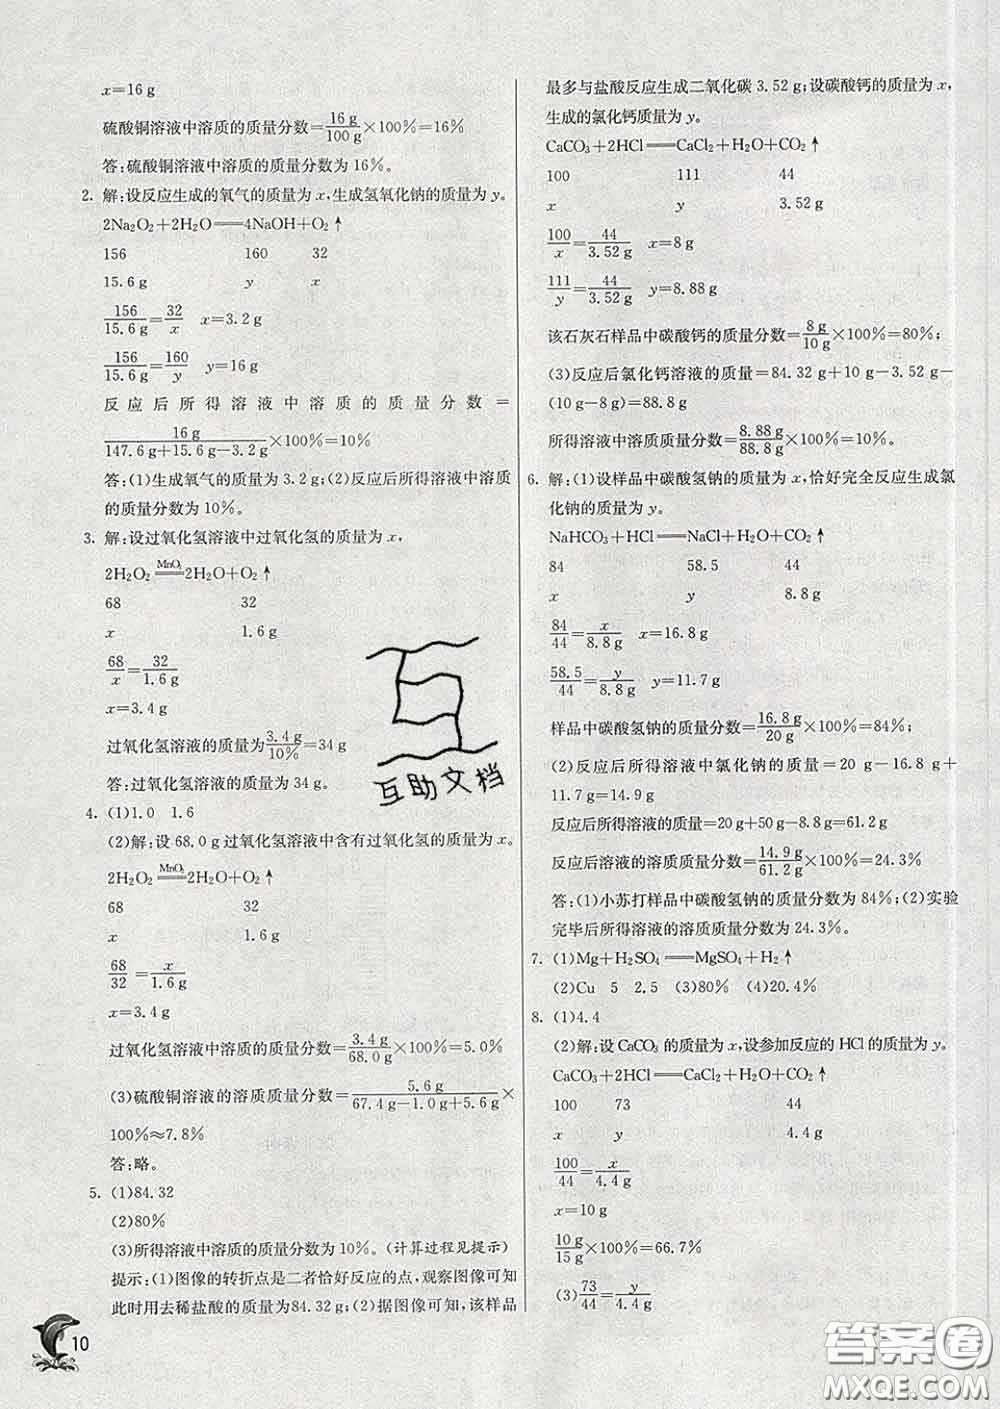 x=16 g
硫酸铜溶液中溶质的质量分数=16 g/100 g×100%=16%
答:硫酸铜溶液中溶质的质量分数为16%。
2. 解:设反应生成的氧气的质量为 x,生成氢氧化钠的质量为 y。
2Na₂O₂+2H₂O══4NaOH+O₂↑
156 160 32
15.6 g y x
156/15.6 g=32/x x=3.2 g
156/15.6 g=160/y y=16 g
反应后所得溶液中溶质的质量分数=
16 g/(147.6 g+15.6 g-3.2 g)×100%=10%
答:(1)生成氧气的质量为 3.2 g;(2)反应后所得溶液中溶质
的质量分数为 10%。
3. 解:设过氧化氢溶液中过氧化氢的质量为 x,
2H₂O₂ MnO₂══ 2H₂O+O₂↑
68 32
x 1.6 g
68/x=32/1.6 g
x=3.4 g
过氧化氢溶液的质量为3.4 g/10%=34 g
答:过氧化氢溶液的质量为 34 g。
4. (1)1.0 1.6
(2)解:设 68.0 g 过氧化氢溶液中含有过氧化氢的质量为 x。
2H₂O₂ MnO₂══ 2H₂O+O₂↑
68 32
x 1.6 g
68/32=x/1.6 g
x=3.4 g
过氧化氢溶液中溶质的质量分数=3.4 g/68.0 g×100%=5.0%
(3)硫酸铜溶液的溶质质量分数=5.6 g/(67.4 g-1.0 g+5.6 g)×
100%≈7.8%
答:略。
5. (1)84.32
(2)80%
(3)所得溶液中溶质的质量分数为 10%。(计算过程见提示)
提示:(1)图像的转折点是二者恰好反应的点,观察图像可知
此时用去稀盐酸的质量为84.32 g;(2)据图像可知,该样品
10
最多与盐酸反应生成二氧化碳 3.52 g;设碳酸钙的质量为 x,
生成的氯化钙质量为 y。
CaCO₃+2HCl══CaCl₂+H₂O+CO₂↑
100 111 44
x y 3.52 g
100/x=44/3.52 g x=8 g
111/y=44/3.52 g y=8.88 g
该石灰石样品中碳酸钙的质量分数=8 g/10 g×100%=80%;
(3)反应后氯化钙溶液的质量=84.32 g+10 g-3.52 g-
(10 g-8 g)=88.8 g
所得溶液中溶质质量分数=8.88 g/88.8 g×100%=10%。
6. 解:(1)设样品中碳酸氢钠的质量为 x,恰好完全反应生成氯
化钠的质量为 y。
NaHCO₃+HCl══NaCl+H₂O+CO₂↑
84 58.5 44
x y 8.8 g
84/44=x/8.8 g x=16.8 g
58.5/44=y/8.8 g y=11.7 g
样品中碳酸氢钠的质量分数=16.8 g/20 g×100%=84%;
(2)反应后所得溶液中氯化钠的质量=20 g-16.8 g+
11.7 g=14.9 g
反应后所得溶液的质量=20 g+50 g-8.8 g=61.2 g
反应后溶液的溶质质量分数=14.9 g/61.2 g×100%=24.3%
答:(1)小苏打样品中碳酸氢钠的质量分数为 84%;(2)实验
完毕后所得溶液的溶质质量分数为 24.3%。
7. (1)Mg+H₂SO₄══MgSO₄+H₂↑
(2)Cu 5 2.5 (3)80% (4)20.4%
8. (1)4.4
(2)解:设 CaCO₃ 的质量为 x,设参加反应的 HCl 的质量为 y。
CaCO₃+2HCl══CaCl₂+H₂O+CO₂↑
100 73 44
x y 4.4 g
100/44=x/4.4 g
x=10 g
10 g/15 g×100%=66.7%
(3)73/44=y/4.4 g
互助文档
答案圈
MXQE.COM